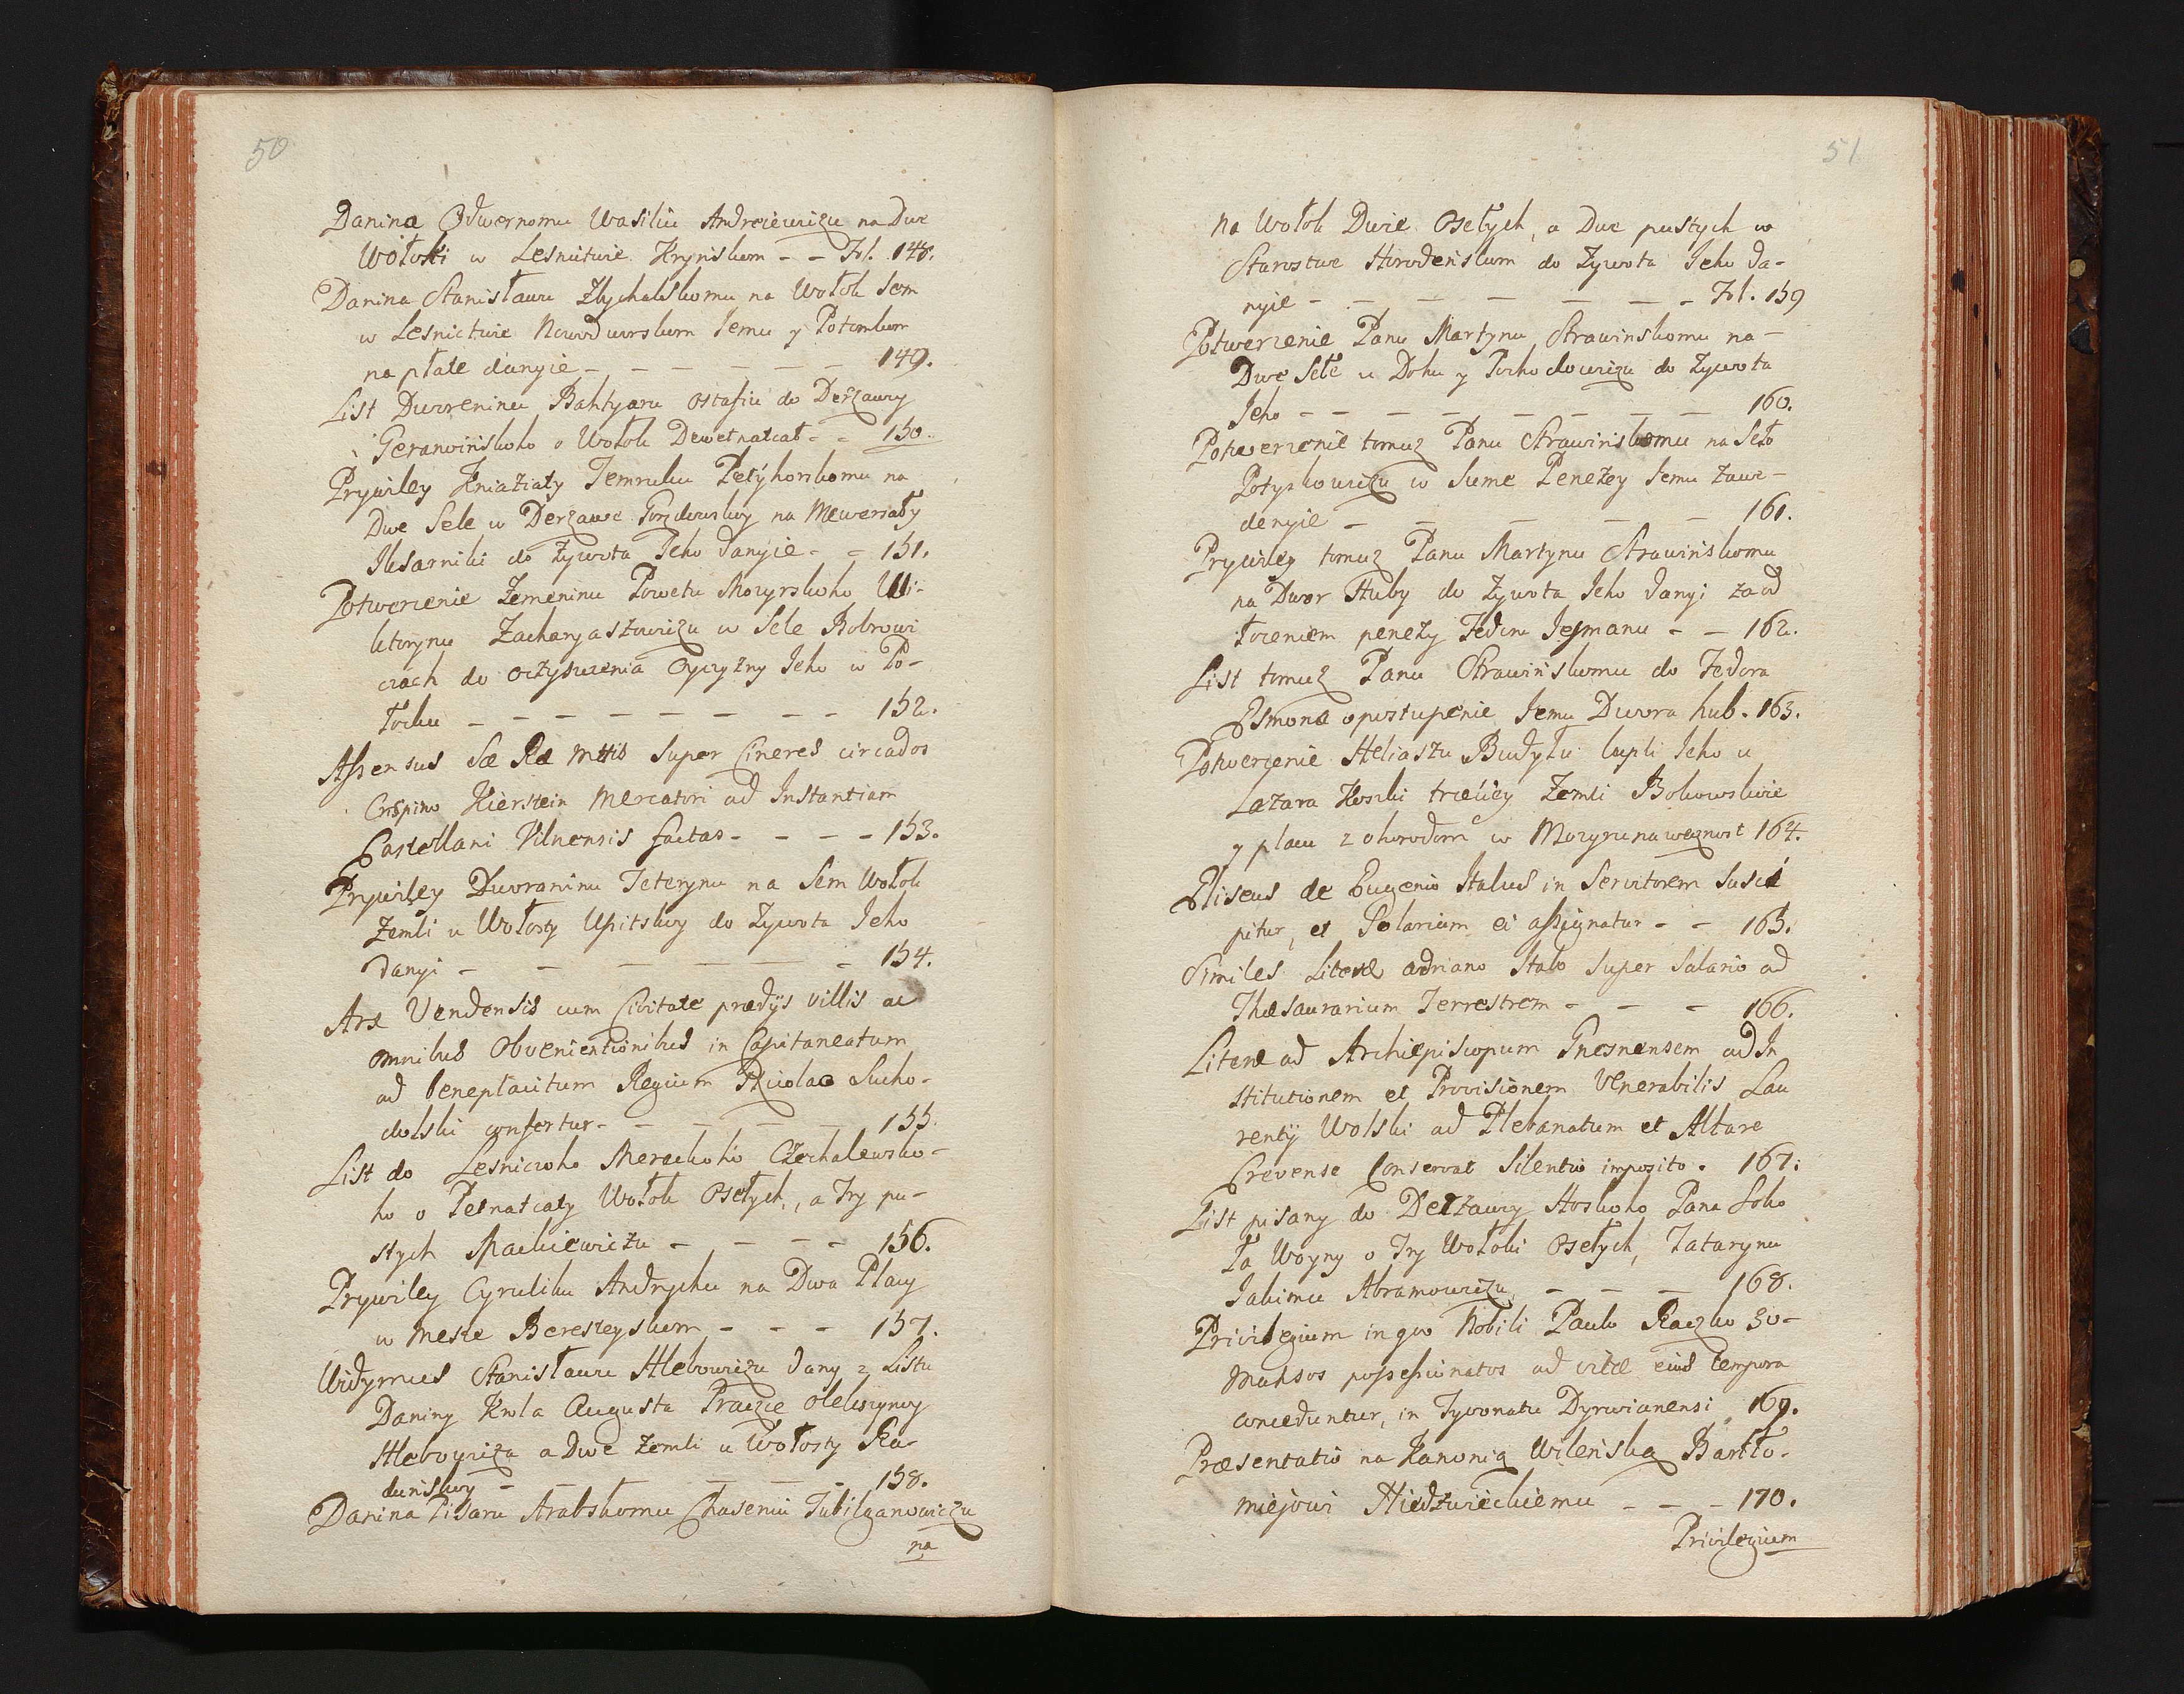 50
Danina Odwernomu Wasiliu Andreiewiczu na Dwe
Wołoki w Lesnictwie Krynskom - - Fol. 148.
Danina Stanisławu Zbychalskomu na Wołok Sem
w Lesnictwie Nowodworskom Jemu y Potomkom
na płate danyie - - - - - - 149.
List Dworeninu Bahtyaru Ostafiu do Derżawy
Geranoinskoho o Wołok Dewetnatcat - - 150.
Prywiley Kniaźiaty Temruku Petyhorskomu na
Dwe Sele w Derżawe Gorzdowskoy na Mewersaty
Iksarniki do Żywota Jeho danyie - - 151.
Potwerzenie Zemeninu Powetu Mozyrskoho Wi-
ktorynu Zacharyaszowiczu w Sele Bobrowi
czach do oczyszczenia Oyczyzny Jeho w Po-
łocku - - - - - - - - 152.
Assensus Sæ Ræ Mttis Super Cineres circa dos
Crispino Kierstein Mercatori ad Instantiam
Castellani Vilnensis factas - - - - 153.
Prywiley Dworaninu Teterynu na Sem Wołok
Zemli u Wołosty Upitskoy do Żywota Jeho
danyi - - - - - - 154.
Arx Vendensis cum Civitate prædÿs villis ac
omnibus Obvenientionibus in Capitaneatum
ad beneplacitum Regium Nicolao Sucho-
dolski confertur - - - - - 155.
List do Lesniczoho Mereckoho Czechalewsko-
ho o Petnatcaty Wołok Osełych, a Try pu-
stych Mackiewiczu - - - - 156.
Prywiley Cyruliku Andrychu na Dwa Placy
w Meste Beresteyskom - - - 157.
Widymus Stanisławu Hlebowiczu dany z Listu
Daniny Krola Augusta Pracze Olechnowy
Hlebowicza a Dwe Zemli u Wołosty Ra-
dunskoy - - - - - 158.
Danina Pisaru Arabskomu Chaseniu Tubilganowiczu
na
51
Na Wołok Dwie Osełych, a Dwe pustych w
Starostwe Horodenskom do Żywota Jeho da-
nyie - - - - - - - Fol. 159
Potwerzenie Panu Martynu Strawinskomu na-
Dwe Sełe u Dohu y Pochodowiczu do Żywota
Jeho - - - - - - - - 160.
Potwerzenie tomuż Panu Strawinskomu na Seło
Potyskowiczu w Sume Peneżey Jemu Zawe-
denyie - - - - - 161.
Prywiley tomuż Panu Martynu Strawinskomu
na Dwor Huby do Żywota Jeho danyi za od
łożeniem peneży Fedoru Jesmanu - - 162.
List tomuż Panu Strawinskomu do Fedora
Esmona o postupenie Jemu Dwora hub. 163.
Potwerzenie Heliaszu Budyłu kupli Jeho u
Lazara Koszki treticy Zemli Bokowskie
y placu z ohorodom w Mozyru na wecznost 164.
Eliseus de Eugenio Italus in Servitorem Susci
pitur, et Solarium ei assignatur - - 165.
Similes Literæ Adriano Italo Super Salario ad
Thæsaurarium Terrestrem - - - 166.
Literæ ad Archiepiscopum Gnesnensem ad In
stitutionem et Provisionem Venerabilis Lau
rentÿ Wolski ad Plebanatum et Altare
Crevense Conservat Silentio imposito. 167.
List pisany do Derżawy Hoskoho Pana Soko
ła Woyny o Try Wołoki Osełych, Tatarynu
Jakimu Abramowiczu - - - 168.
Privilegium in quo Nobili Paulo Raczko 30-
Mansos possessionatos ad vitæ eius tempora
conceduntur, in Tyvonatu Dyrwianensi 169.
Præsentatio na Kanonią Wileńską Bartło-
miejowi Niedzwieckiemu - - - 170.
Privilegium